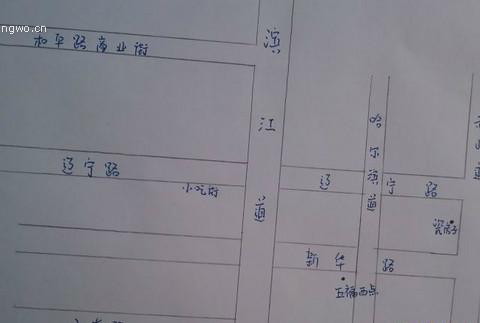 ngwo.cn
和平路商业街
滨江道
哈尔滨道
辽宁路
小吃街
辽宁路
瓷房子
新华路
五福西点